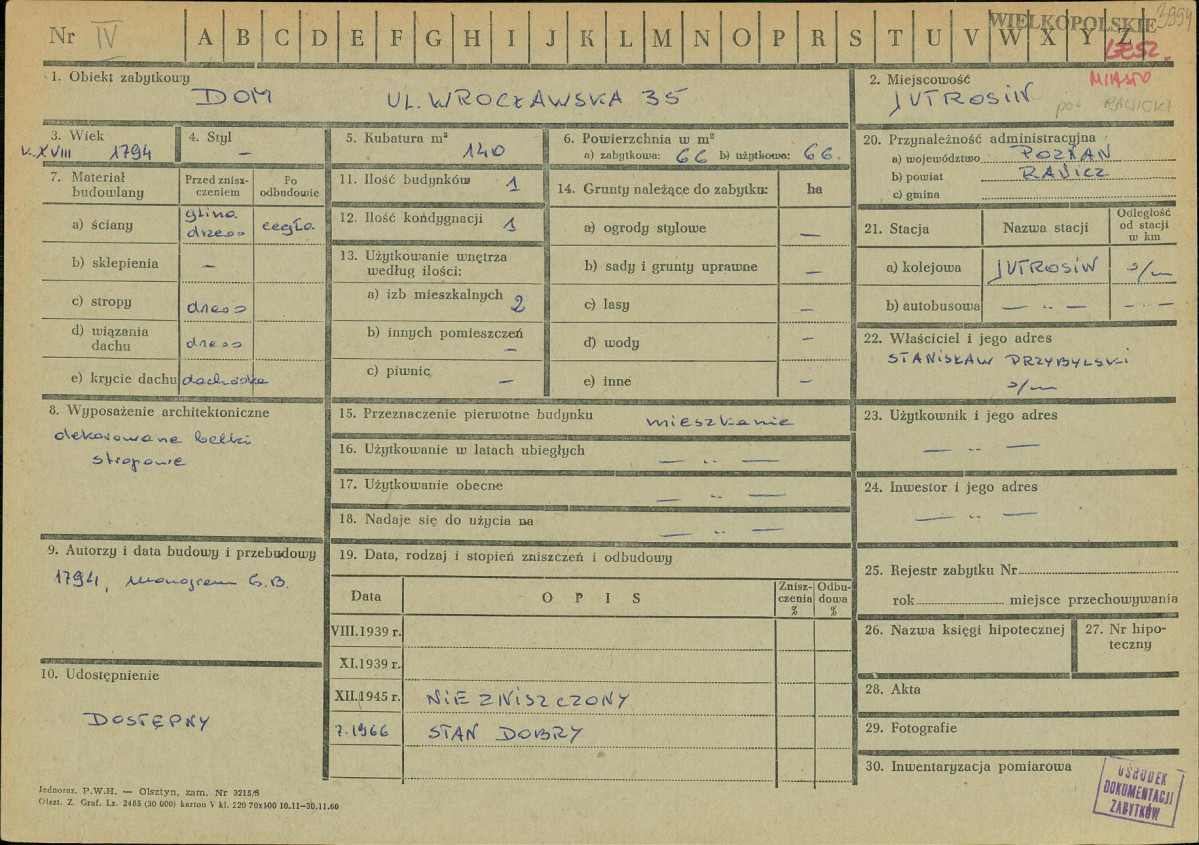 Nr IV A B C D E F G H I J K L M N O P R S T U V W X Y Z
WIELKOPOLSKIE 3994
LESZ.
MIASTO
RAWICKI
1. Obiekt zabytkowy
DOM UL. WROCŁAWSKA 35
2. Miejscowość
JUTROSIN
3. Wiek
XVIII 1794
4. Styl
—
5. Kubatura m³
140
6. Powierzchnia w m²
a) zabytkowa: 66 b) użytkowa: 66.
7. Materiał budowlany
Przed zniszczeniem
Po odbudowie
a) ściany glina drzewo cegła
b) sklepienia —
c) stropy drzewo
d) wiązania dachu drzewo
e) krycie dachu dachówka
8. Wyposażenie architektoniczne
dekorowane belki
stropowe
9. Autorzy i data budowy i przebudowy
1794, monogram G.B.
10. Udostępnienie
DOSTĘPNY
11. Ilość budynków 1
12. Ilość kondygnacji 1
13. Użytkowanie wnętrza
według ilości:
a) izb mieszkalnych 2
b) innych pomieszczeń —
c) piwnic —
14. Grunty należące do zabytku: ha
a) ogrody stylowe —
b) sady i grunty uprawne —
c) lasy —
d) wody —
e) inne —
15. Przeznaczenie pierwotne budynku mieszkanie
16. Użytkowanie w latach ubiegłych — „ —
17. Użytkowanie obecne — „ —
18. Nadaje się do użycia na — „ —
19. Data, rodzaj i stopień zniszczeń i odbudowy
Data OPIS Zniszczenia % Odbudowa %
VIII.1939 r.
XI.1939 r.
XII.1945 r. NIE ZNISZCZONY
7.1966 STAN DOBRY
20. Przynależność administracyjna
a) województwo POZNAŃ
b) powiat RAWICZ
c) gmina
21. Stacja Nazwa stacji Odległość od stacji w km
a) kolejowa JUTROSIN
b) autobusowa — „ — — „ —
22. Właściciel i jego adres
STANISŁAW PRZYBYLSKI
23. Użytkownik i jego adres
— „ —
24. Inwestor i jego adres
— „ —
25. Rejestr zabytku Nr
rok miejsce przechowywania
26. Nazwa księgi hipotecznej
27. Nr hipoteczny
28. Akta
29. Fotografie
30. Inwentaryzacja pomiarowa
OŚRODEK
DOKUMENTACJI
ZABYTKÓW
Jednoraz. P.W.H. — Olsztyn, zam. Nr 3215/S
Olszt. Z. Graf. Lz. 2485 (30 000) karton V kl. 220 70x100 10.11—30.11.60